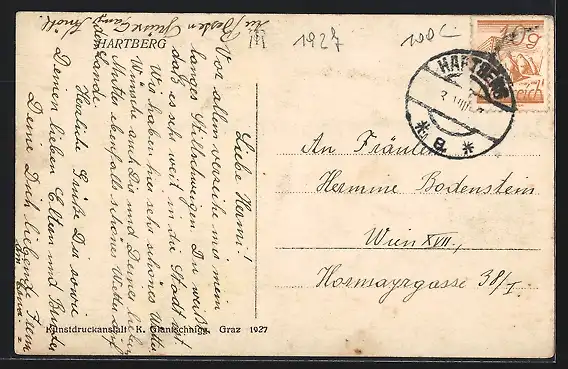 die besten Grüße
HARTBERG
1927
100 C
10 g
HARTBERG
* a *
Liebe Hermi!
Vor allem verzeihe mir mein
langes Stillschweigen. Du weißt
daß es sehr weit in die Stadt ist
Wir haben hier sehr schönes Wetter
Wünsche auch Dir und Deiner lieben
Mutter ebenfalls schönes Wetter
Herzliche Grüße Dir sowie
Deinen lieben Eltern und Bruder
Deine Dich liebende
An Fräulein
Hermine Bodenstein
Wien XVII.,
Hormayrgasse 38/I
Kunstdruckanstalt K. Glantschnigg, Graz 1927